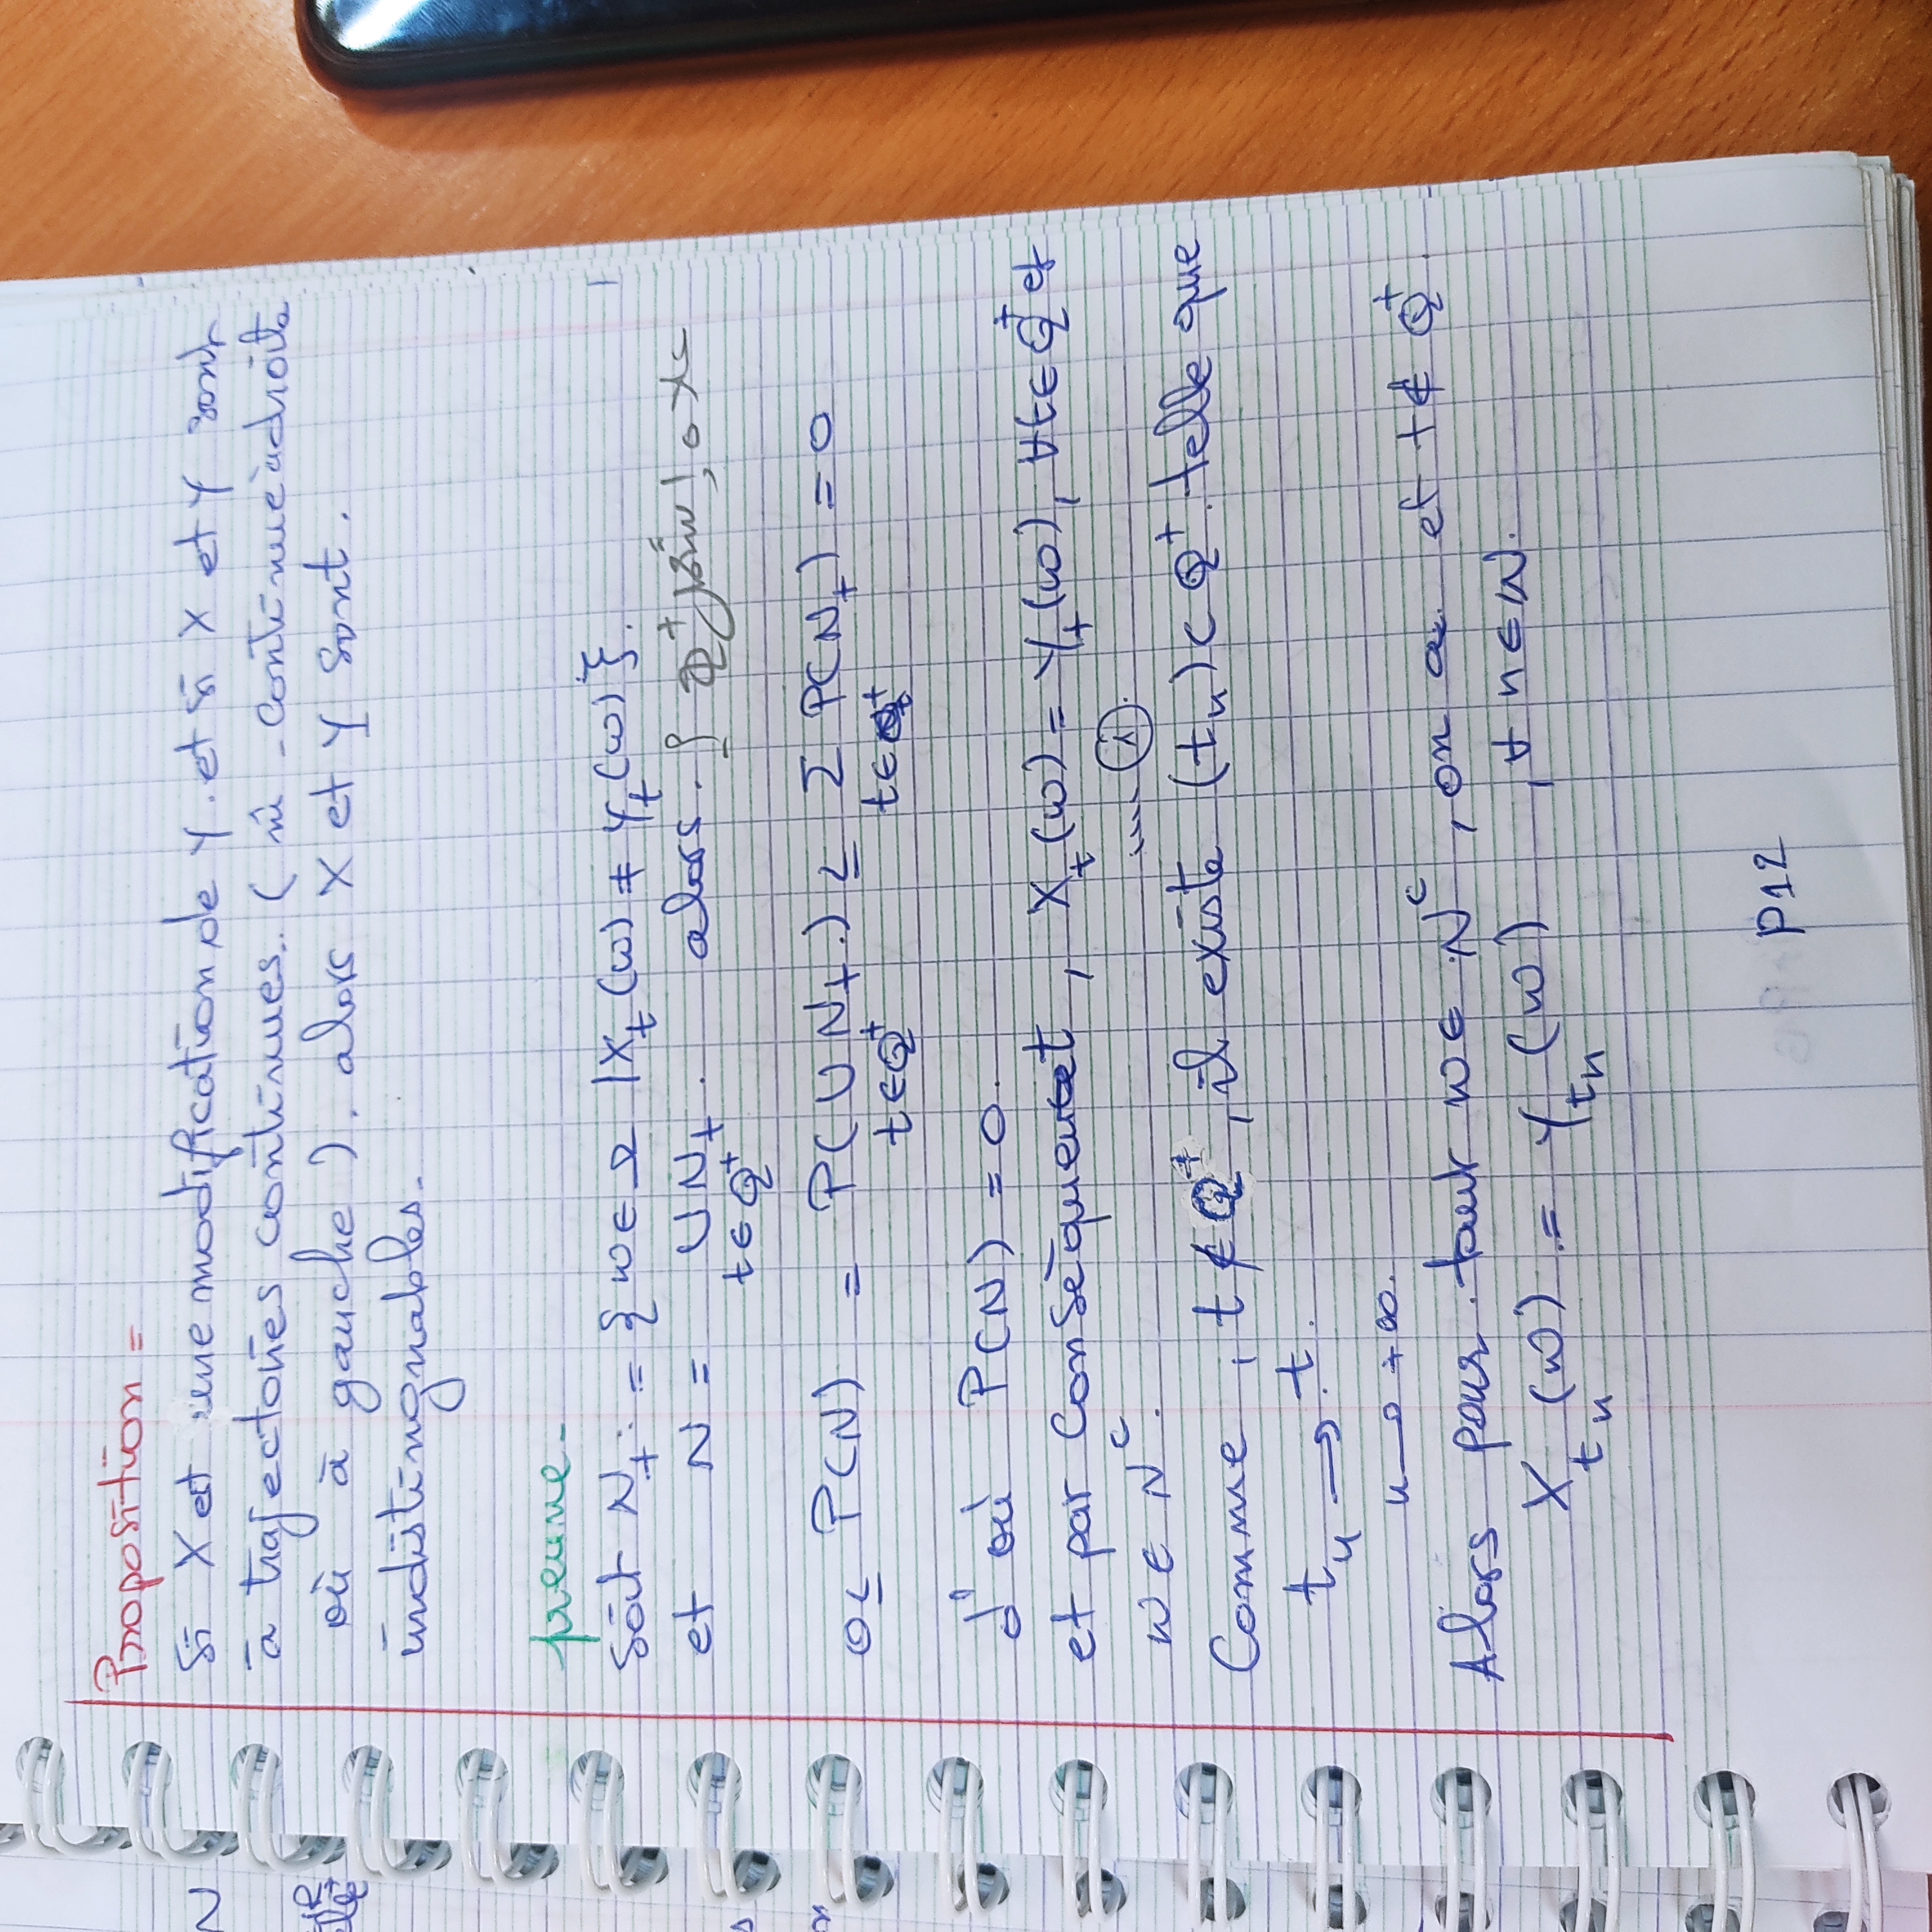 Proposition =
Si X est une modification de Y. et si X et Y sont
à trajectoires continues. ( ni - continue à droite
où à gauche ). alors X et Y sont.
indistinguables.
preuve -
Soit N_t := { ω ∈ Ω / X_t (ω) ≠ Y_t (ω) }.
et N = ∪ N_t . alors. Q⁺
t ∈ Q⁺
0 ≤ P(N) = P( ∪ N_t .) ≤ Σ P(N_t) = 0
t ∈ Q⁺ t ∈ Q⁺
d'où P(N) = 0.
et par conséquent, X_t (ω) = Y_t (ω), ∀t ∈ Q⁺ et
ω ∈ N^c.
Comme, t ∉ Q⁺, il existe (t_n) ⊂ Q⁺. telle que
t_n → t.
n → +∞.
Alors pour tout ω ∈ N^c, on a. et t ∉ Q⁺.
X_{t_n} (ω) = Y_{t_n} (ω) , ∀ n ∈ N.
P12